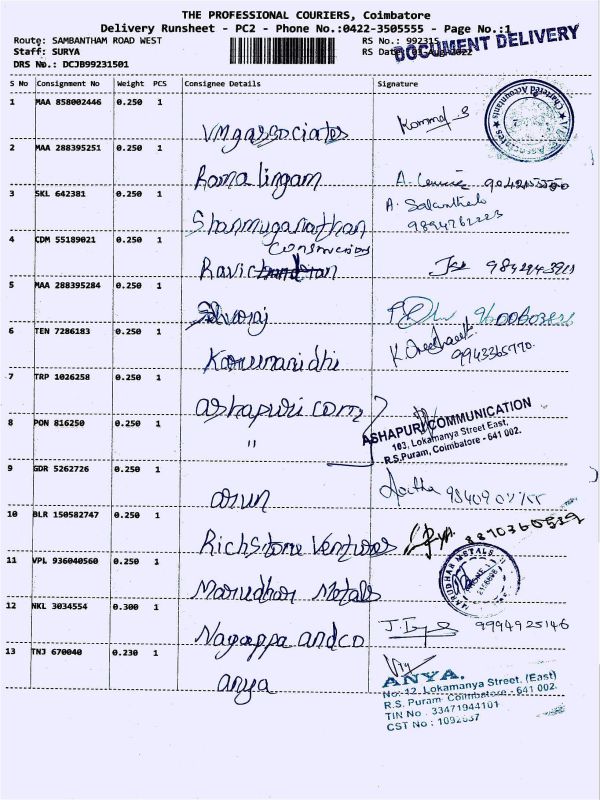 THE PROFESSIONAL COURIERS, Coimbatore
Delivery Runsheet - PC2 - Phone No.:0422-3505555 - Page No.:1
Route: SAMBANTHAM ROAD WEST
RS No.: 992315
DOCUMENT DELIVERY
Staff: SURYA
RS Date
DRS No.: DCJB99231501
S No Consignment No Weight PCS Consignee Details Signature
1 MAA 858002446 0.250 1
VMgassociates
Chartered Accountants
2 MAA 288395251 0.250 1
Ramalingam
A.
3 SKL 642381 0.250 1
A.
Shanmuganathan
9894762223
Construction
4 CDM 55189021 0.250 1
Ravi
5 MAA 288395284 0.250 1
6 TEN 7286183 0.250 1
K.
Karunanidhi
9943365770.
7 TRP 1026258 0.250 1
ashapuri com
ASHAPURI COMMUNICATION
8 PON 816250 0.250 1
"
103, Lokamanya Street East,
R.S.Puram, Coimbatore - 641 002.
9 GDR 5262726 0.250 1
arun
10 BLR 150582747 0.250 1
8870360539
Richstone Ventures
11 VPL 936040560 0.250 1
MARUDHAR METALS
Marudhar Metals
12 NKL 3034554 0.300 1
9994925146
Nagappa andco
13 TNJ 670040 0.230 1
anya
ANYA.
No: 12, Lokamanya Street, (East)
R.S. Puram Coimbatore - 641 002.
TIN No : 33471944101
CST No : 1092637